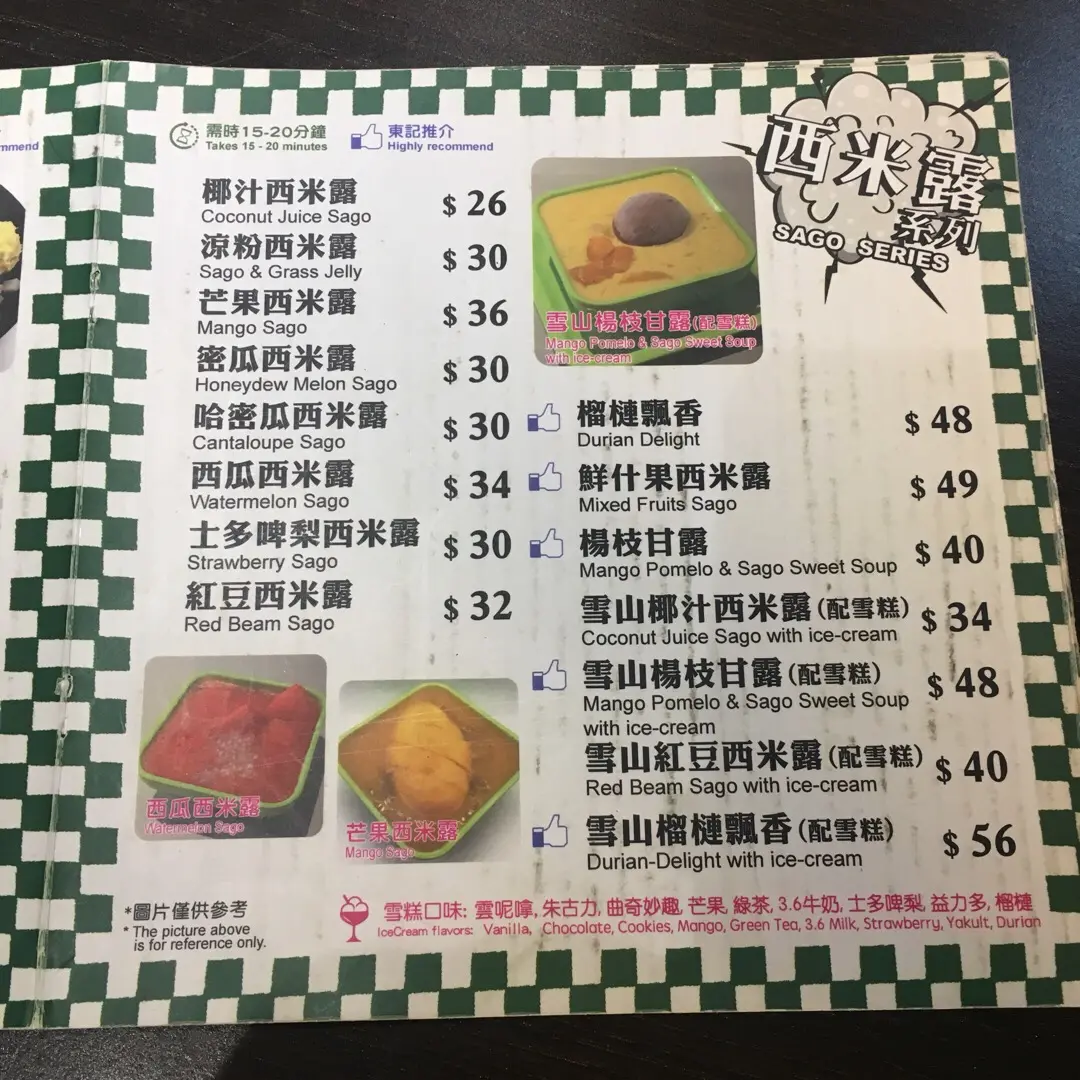 mmend
需時15-20分鐘
Takes 15 - 20 minutes
東記推介
Highly recommend
西米露
系列
SAGO SERIES
椰汁西米露 $ 26
Coconut Juice Sago
涼粉西米露 $ 30
Sago & Grass Jelly
芒果西米露 $ 36
Mango Sago
密瓜西米露 $ 30
Honeydew Melon Sago
哈密瓜西米露 $ 30
Cantaloupe Sago
西瓜西米露 $ 34
Watermelon Sago
士多啤梨西米露 $ 30
Strawberry Sago
紅豆西米露 $ 32
Red Beam Sago
西瓜西米露
Watermelon Sago
芒果西米露
Mango Sago
雪山楊枝甘露(配雪糕)
Mango Pomelo & Sago Sweet Soup
with ice-cream
榴槤飄香 $ 48
Durian Delight
鮮什果西米露 $ 49
Mixed Fruits Sago
楊枝甘露 $ 40
Mango Pomelo & Sago Sweet Soup
雪山椰汁西米露(配雪糕) $ 34
Coconut Juice Sago with ice-cream
雪山楊枝甘露(配雪糕) $ 48
Mango Pomelo & Sago Sweet Soup
with ice-cream
雪山紅豆西米露(配雪糕) $ 40
Red Beam Sago with ice-cream
雪山榴槤飄香(配雪糕) $ 56
Durian-Delight with ice-cream
*圖片僅供參考
* The picture above
is for reference only.
雪糕口味: 雲呢嗱, 朱古力, 曲奇妙趣, 芒果, 綠茶, 3.6牛奶, 士多啤梨, 益力多, 榴槤
IceCream flavors: Vanilla, Chocolate, Cookies, Mango, Green Tea, 3.6 Milk, Strawberry, Yakult, Durian